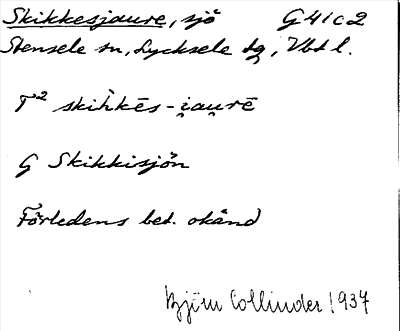 Skikkesjaure, sjö G41c2
Stensele sn, Lycksele lg, Vbt l.
T² skik̀kēs-i̯au̯rē
G Skikkisjön
Förledens bet. okänd
Björn Collinder 1937